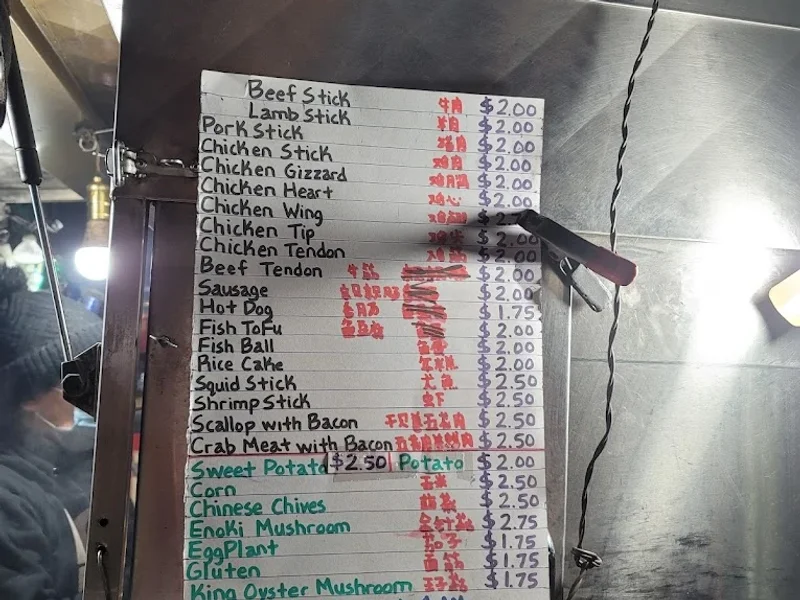 Beef Stick 牛肉 $2.00
Lamb Stick 羊肉 $2.00
Pork Stick 猪肉 $2.00
Chicken Stick 鸡肉 $2.00
Chicken Gizzard $2.00
Chicken Heart 鸡心 $2.00
Chicken Wing 鸡翅
Chicken Tip 鸡尖 2.00
Chicken Tendon 鸡筋 $2.00
Beef Tendon 牛筋 $2.00
Sausage $2.00
Hot Dog $1.75
Fish Tofu 鱼豆腐 $2.00
Fish Ball 鱼蛋 $2.00
Rice Cake 年糕 $2.00
Squid Stick 尤鱼 $2.50
Shrimp Stick 虾 $2.50
Scallop with Bacon $2.50
Crab Meat with Bacon $2.50
Sweet Potato $2.50 Potato $2.00
Corn 玉米 $2.50
Chinese Chives $2.50
Enoki Mushroom 金针菇 $2.75
EggPlant 茄子 $1.75
Gluten 面筋 $1.75
King Oyster Mushroom 王子菇 $1.75